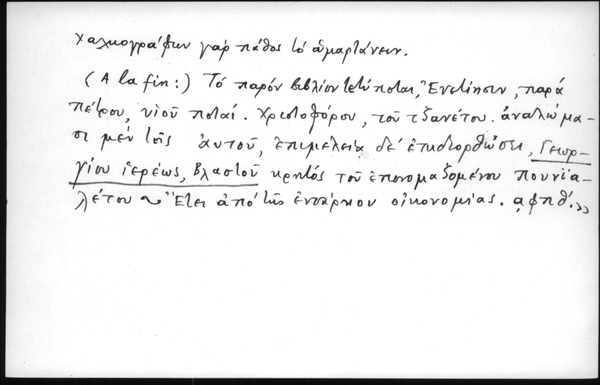 χαλκογράφων γάρ πάθος τό ἁμαρτάνειν.
(A la fin:) Τό παρόν βιβλίον τετύποται, Ἐνετίησιν, παρά
πέτρου, υἱοῦ ποταί. Χριστοφόρου, τοῦ τζανέτου. ἀναλώμα-
σι μέν τοῖς ἀυτοῦ, ἐπιμελεία δέ ἐπιδιορθώσει, Γεωρ-
γίου ἱερέως, Βλαστοῦ κρητός τοῦ ἐπονομαζομένου πουνία-
λέτου ~ Ἔτει ἀπό τῆς ἐνσάρκου οἰκονομίας. αφπθ.»